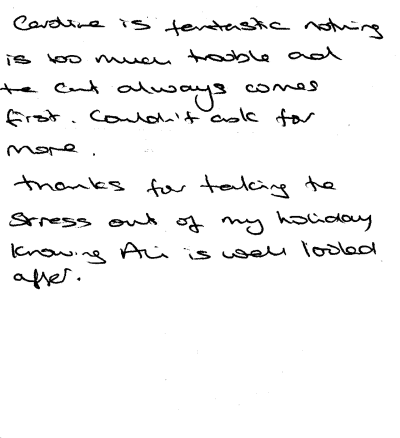 Caroline is fantastic nothing
is too much trouble and
the cat always comes
first. Couldn't ask for
more.
Thanks for taking the
stress out of my holiday
knowing Ali is well looked
after.